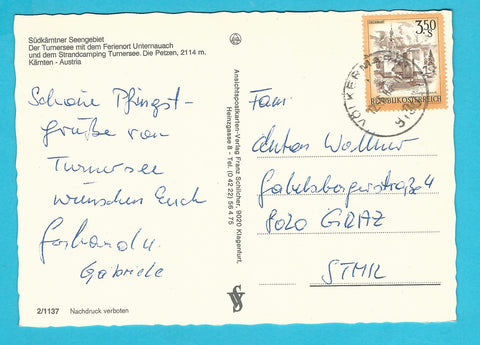 Südkärntner Seengebiet
Der Turnersee mit dem Ferienort Unternauach
und dem Strandcamping Turnersee. Die Petzen, 2114 m.
Kärnten - Austria
Schöne Pfingst-
grüße von
Turnersee
wünschen Euch
Gerhard u.
Gabriele
2/1137 Nachdruck verboten
Ansichtspostkarten-Verlag Franz Schilcher, 9020 Klagenfurt,
Henzgasse 8 - Tel. (0 42 22) 56 4 75
3.50
S
REPUBLIK ÖSTERREICH
VÖLKERM
Fam.
Anton Wallner
Gabelsbergerstraße 4
8020 GRAZ
STMK